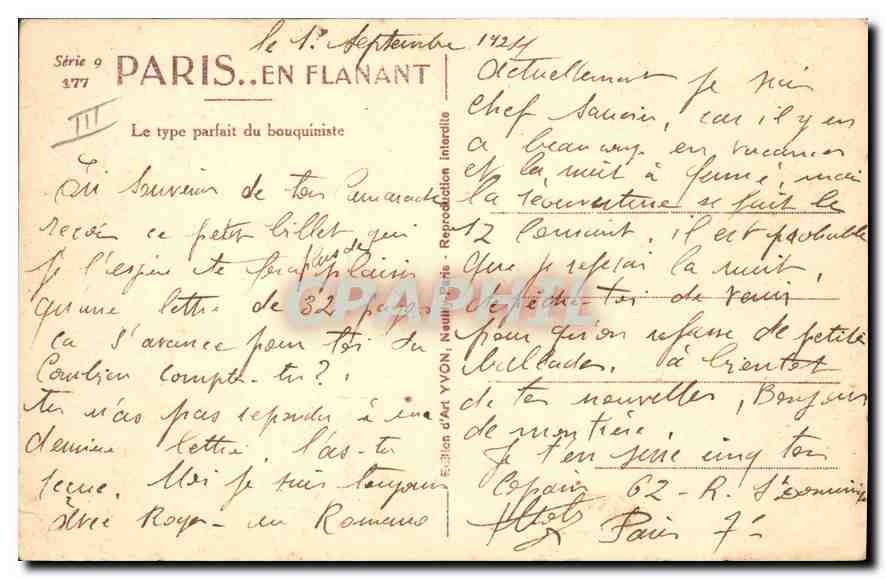 le 1er Septembre 1924
Série 9
177
PARIS.. EN FLANANT
III
Le type parfait du bouquiniste
En souvenir de ton Camarade
reçois ce petit billet qui
je l'espère te fera plus de plaisir
qu'une lettre de 32 pages
ça s'avance pour toi du
Combien compte-tu?
tu n'as pas répondu à ma
dernière lettre, l'as-tu
reçue. Moi je suis toujours
avec Roger
Edition d'Art YVON, Neuilly-Paris - Reproduction interdite
actuellement je suis
chef car il y en
a beaucoup en vacances
et la nuit a fermé, mais
la réouverture se fait le
12 Courant, il est probable
que je refasse la nuit,
dépêche-toi de venir
pour qu'on refasse de petites
ballades. à bientôt
de tes nouvelles, Bonjour
de
Je t'en serre cinq ton
Copain 62 - R. St Dominique
Paris 7e
CPAPHIL